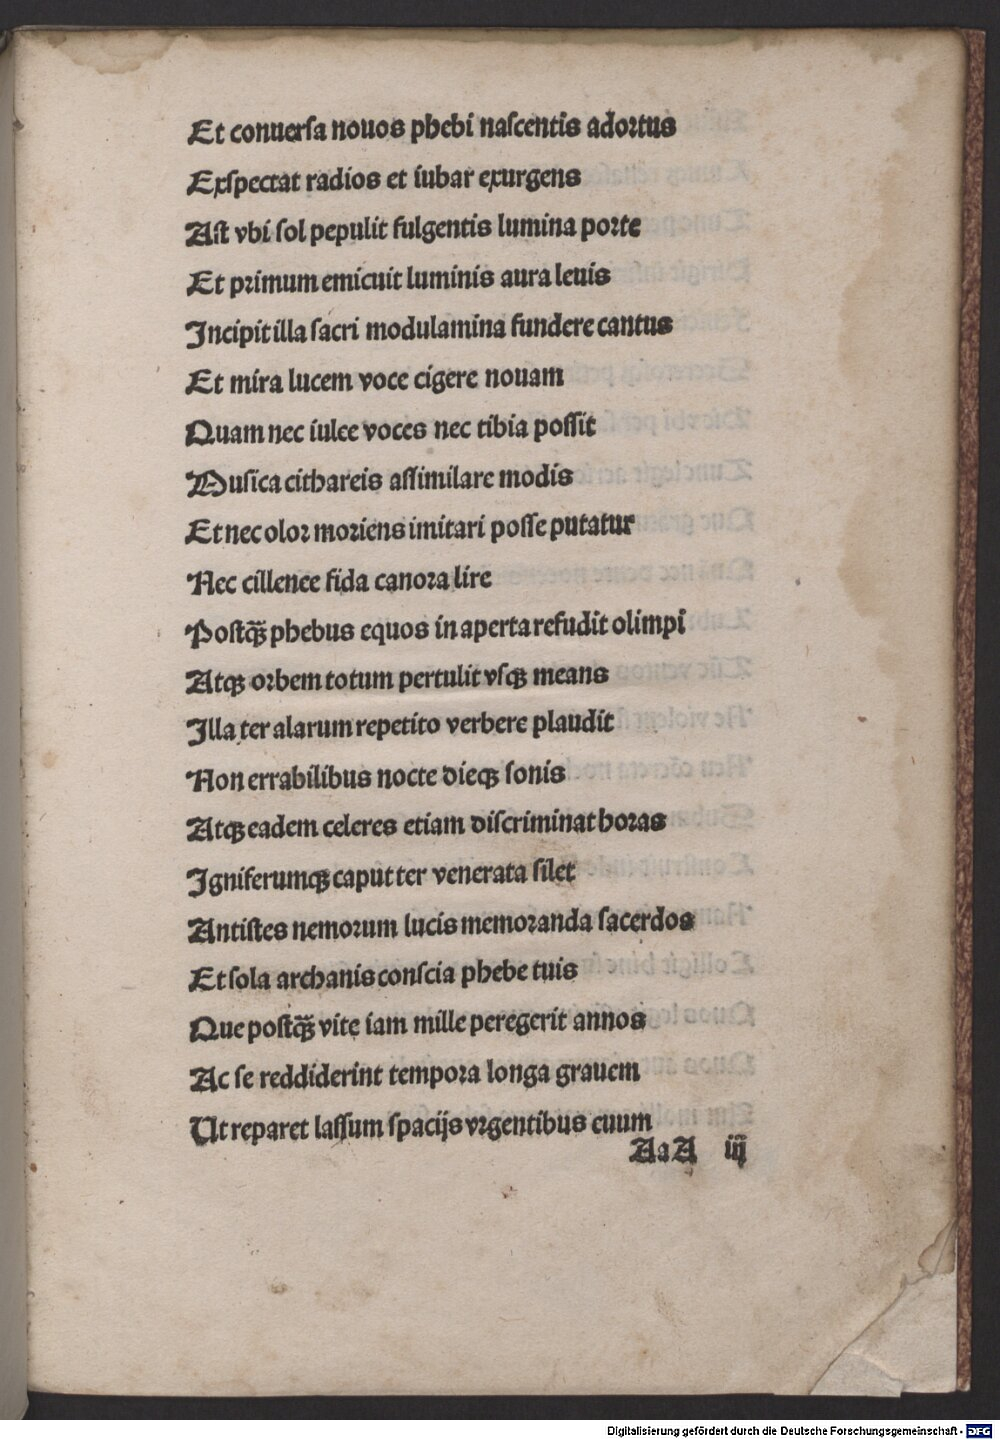 Et conuersa nouos phebi nascentis adortus
Exspectat radios et iubar exurgens
Ast vbi sol pepulit fulgentis lumina porte
Et primum emicuit luminis aura leuis
Incipit illa sacri modulamina fundere cantus
Et mira lucem voce cigere nouam
Quam nec iulee voces nec tibia possit
Musica cithareis assimilare modis
Et nec olor moriens imitari posse putatur
Nec cillenee fida canora lire
Postqȝ̃ phebus equos in aperta refudit olimpi
Atqȝ orbem totum pertulit vsqȝ means
Illa ter alarum repetito verbere plaudit
Non errabilibus nocte dieqȝ sonis
Atqȝ eadem celeres etiam discriminat horas
Igniferumqȝ caput ter venerata silet
Antistes nemorum lucis memoranda sacerdos
Et sola archanis conscia phebe tuis
Que postqȝ̃ vite iam mille peregerit annos
Ac se reddiderint tempora longa grauem
Ut reparet lassum spacijs vrgentibus euum
AaA iij
Digitalisierung gefördert durch die Deutsche Forschungsgemeinschaft - DFG